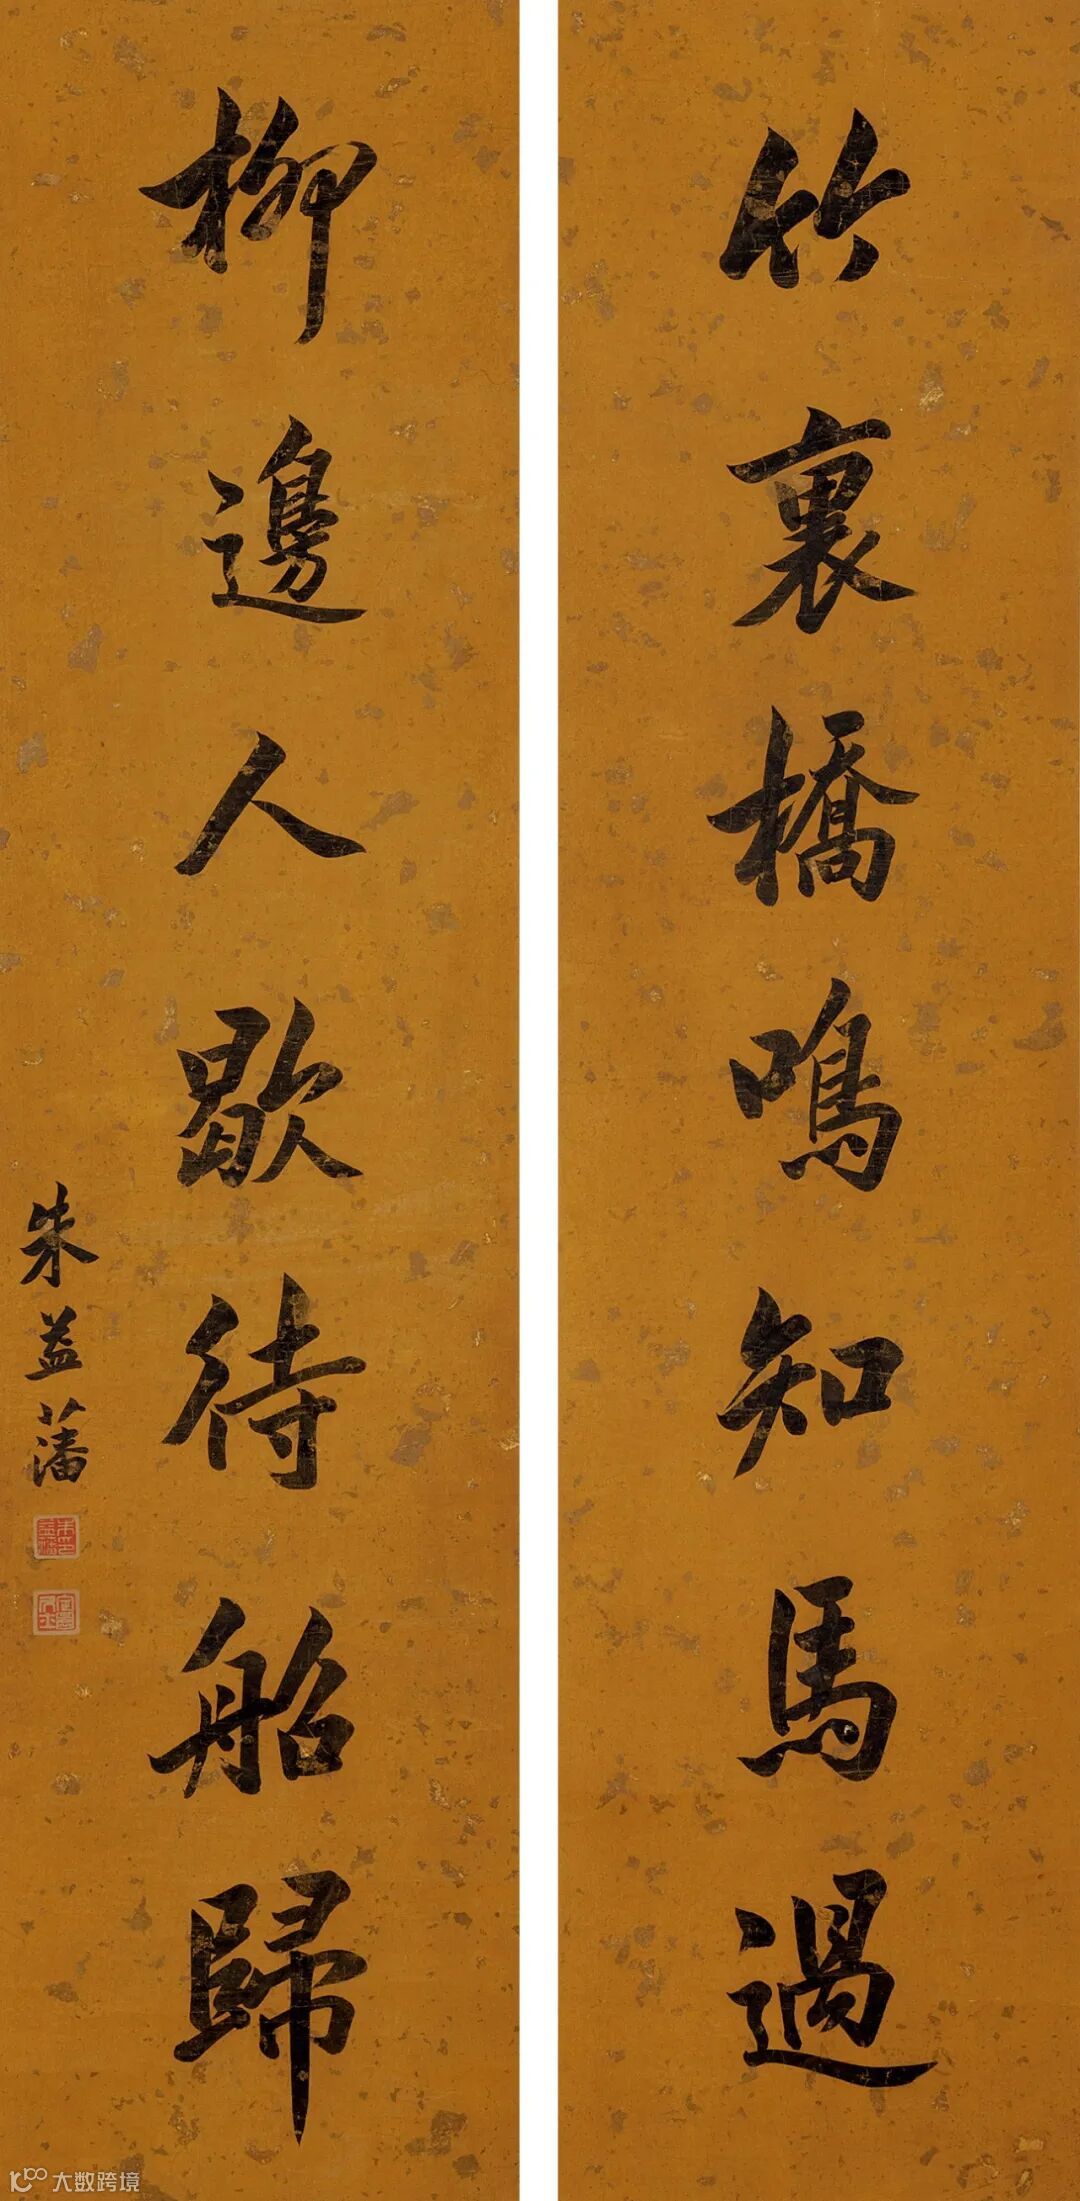 竹裏橋鳴知馬過
柳邊人歇待船歸
朱益藩
大数跨境